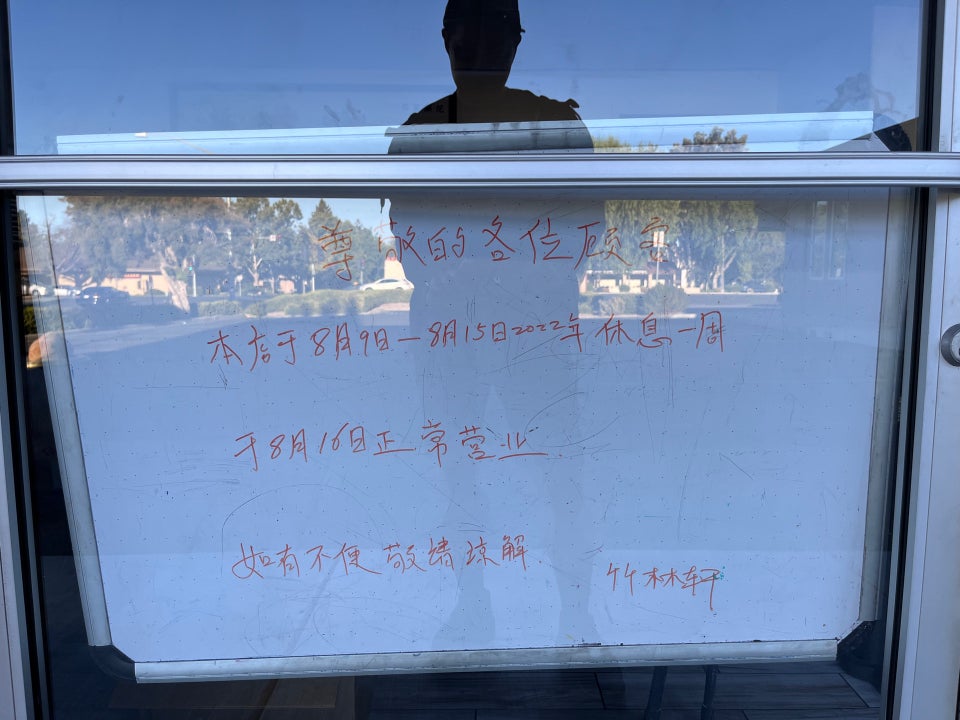 尊敬的各位顾客
本店于8月9日—8月15日2022年休息一周
于8月16日正常营业
如有不便 敬请谅解
竹林轩